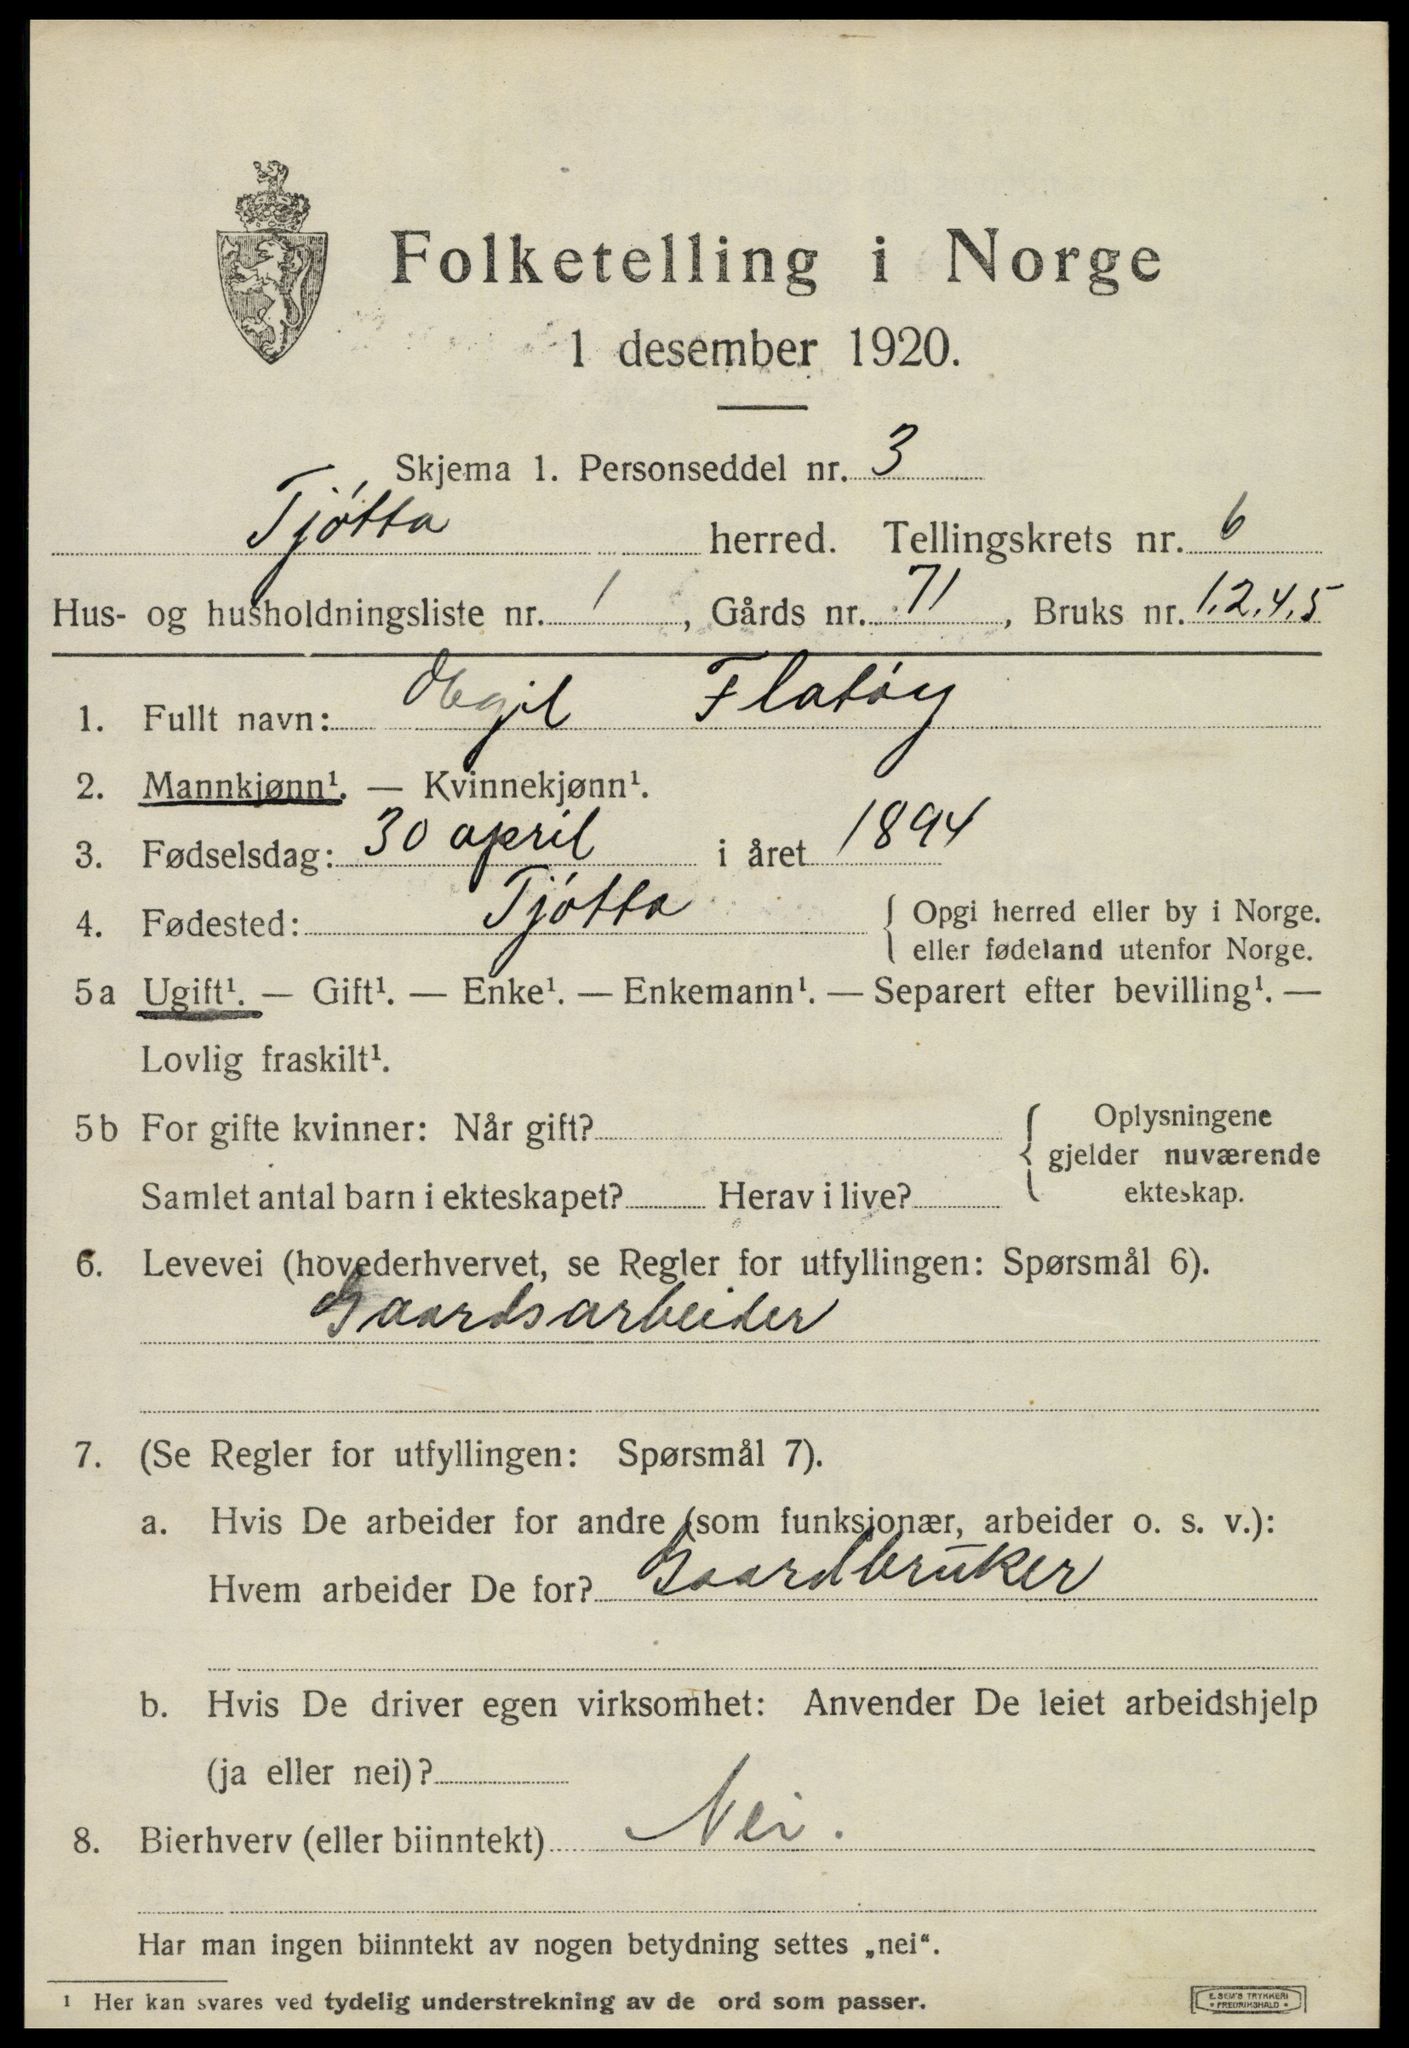 Folketelling i Norge
1 desember 1920.
Skjema 1. Personseddel nr. 3
Tjøtta herred. Tellingskrets nr. 6
Hus- og husholdningsliste nr. 1, Gårds nr. 71, Bruks nr. 1,2,4,5
1. Fullt navn: Flatøy
2. Mannkjønn¹. — Kvinnekjønn¹.
3. Fødselsdag: 30 april i året 1894
4. Fødested: Tjøtta { Opgi herred eller by i Norge.
eller fødeland utenfor Norge.
5a Ugift¹. — Gift¹. — Enke¹. — Enkemann¹. — Separert efter bevilling¹. —
Lovlig fraskilt¹.
5b For gifte kvinner: Når gift? { Oplysningene
gjelder nuværende
Samlet antal barn i ekteskapet? Herav i live? ekteskap.
6. Levevei (hovederhvervet, se Regler for utfyllingen: Spørsmål 6).
Gaardsarbeider
7. (Se Regler for utfyllingen: Spørsmål 7).
a. Hvis De arbeider for andre (som funksjonær, arbeider o. s. v.):
Hvem arbeider De for? Gaardbruker
b. Hvis De driver egen virksomhet: Anvender De leiet arbeidshjelp
(ja eller nei)?
8. Bierhverv (eller biinntekt) Nei.
Har man ingen biinntekt av nogen betydning settes „nei“.
¹ Her kan svares ved tydelig understrekning av de ord som passer.
E. SEM'S TRYKKERI
* FREDRIKSHALD *